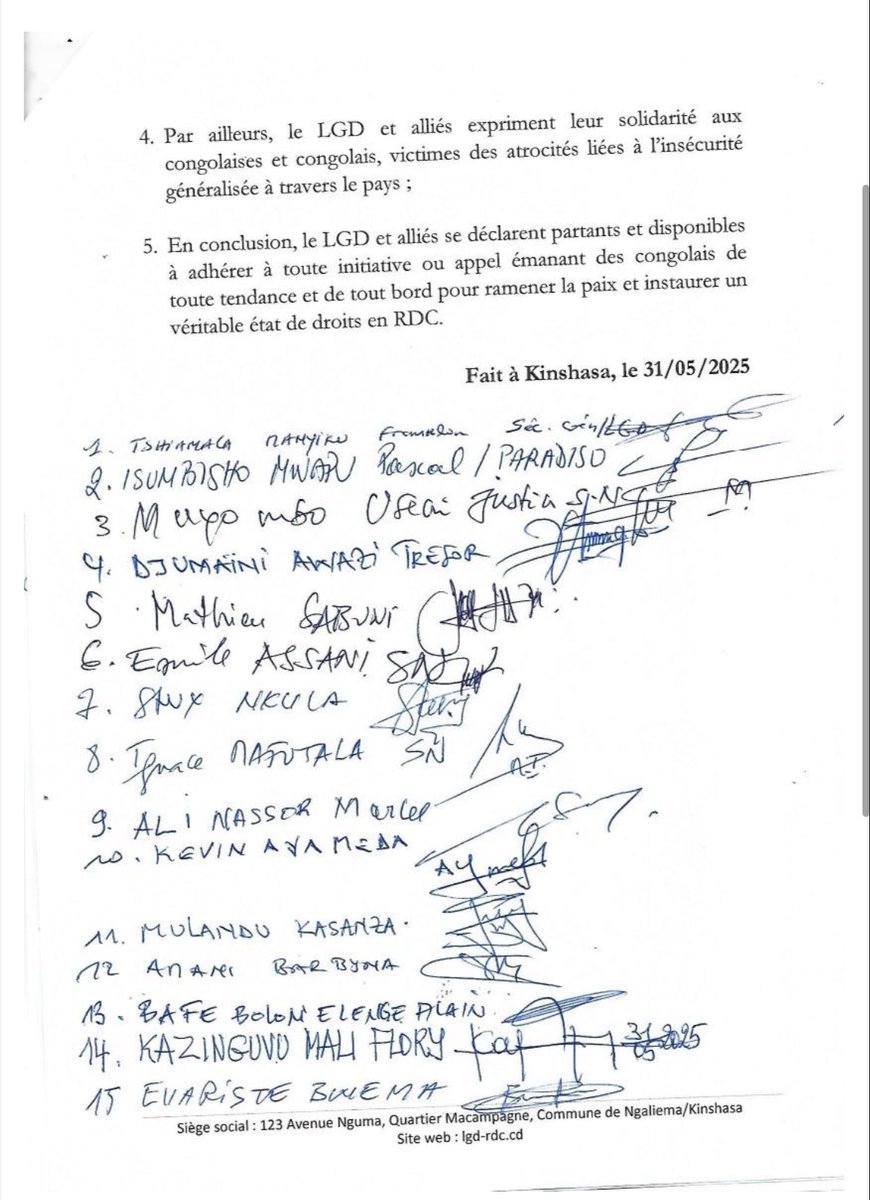 4. Par ailleurs, le LGD et alliés expriment leur solidarité aux
congolaises et congolais, victimes des atrocités liées à l'insécurité
généralisée à travers le pays ;
5. En conclusion, le LGD et alliés se déclarent partants et disponibles
à adhérer à toute initiative ou appel émanant des congolais de
toute tendance et de tout bord pour ramener la paix et instaurer un
véritable état de droits en RDC.
Fait à Kinshasa, le 31/05/2025
1. TSHIAMALA Séc. Gén/LGD
2. ISUMBISHO MWAPU Pascal / PARADISO
3. Justin
4. DJUMAINI AWAZI TRESOR
5. Mathieu SABUNI
6. Emile ASSANI
7. NKULA
8. Ignace MAFUTALA SN
9. ALI NASSOR Marcel
10. KEVIN AYAMEDA
11. MULANDU KASANZA
12 ANANI
13. BAFE BOLON ELENGE ALAIN
14. KAZINGUVU MALI FLORY 31/05/2025
15 EVARISTE BWEMA
Siège social : 123 Avenue Nguma, Quartier Macampagne, Commune de Ngaliema/Kinshasa
Site web : lgd-rdc.cd